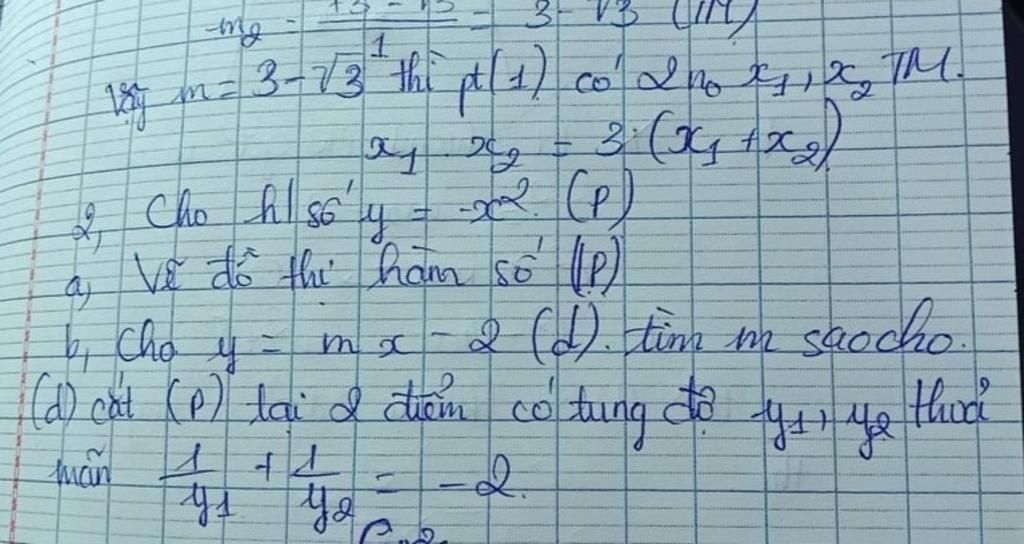 m2 = = 3 - √3 (TM)
Vậy m = 3 - √3 thì pt (1) có 2 no x1, x2 TM.
x1 . x2 = 3. (x1 + x2)
2, Cho h/số y = -x². (P)
a, Vẽ đồ thị hàm số (P)
b, Cho y = mx - 2 (d). tìm m sao cho.
(d) cắt (P) tại 2 điểm có tung độ y1, y2 thoả
mãn 1/y1 + 1/y2 = -2.